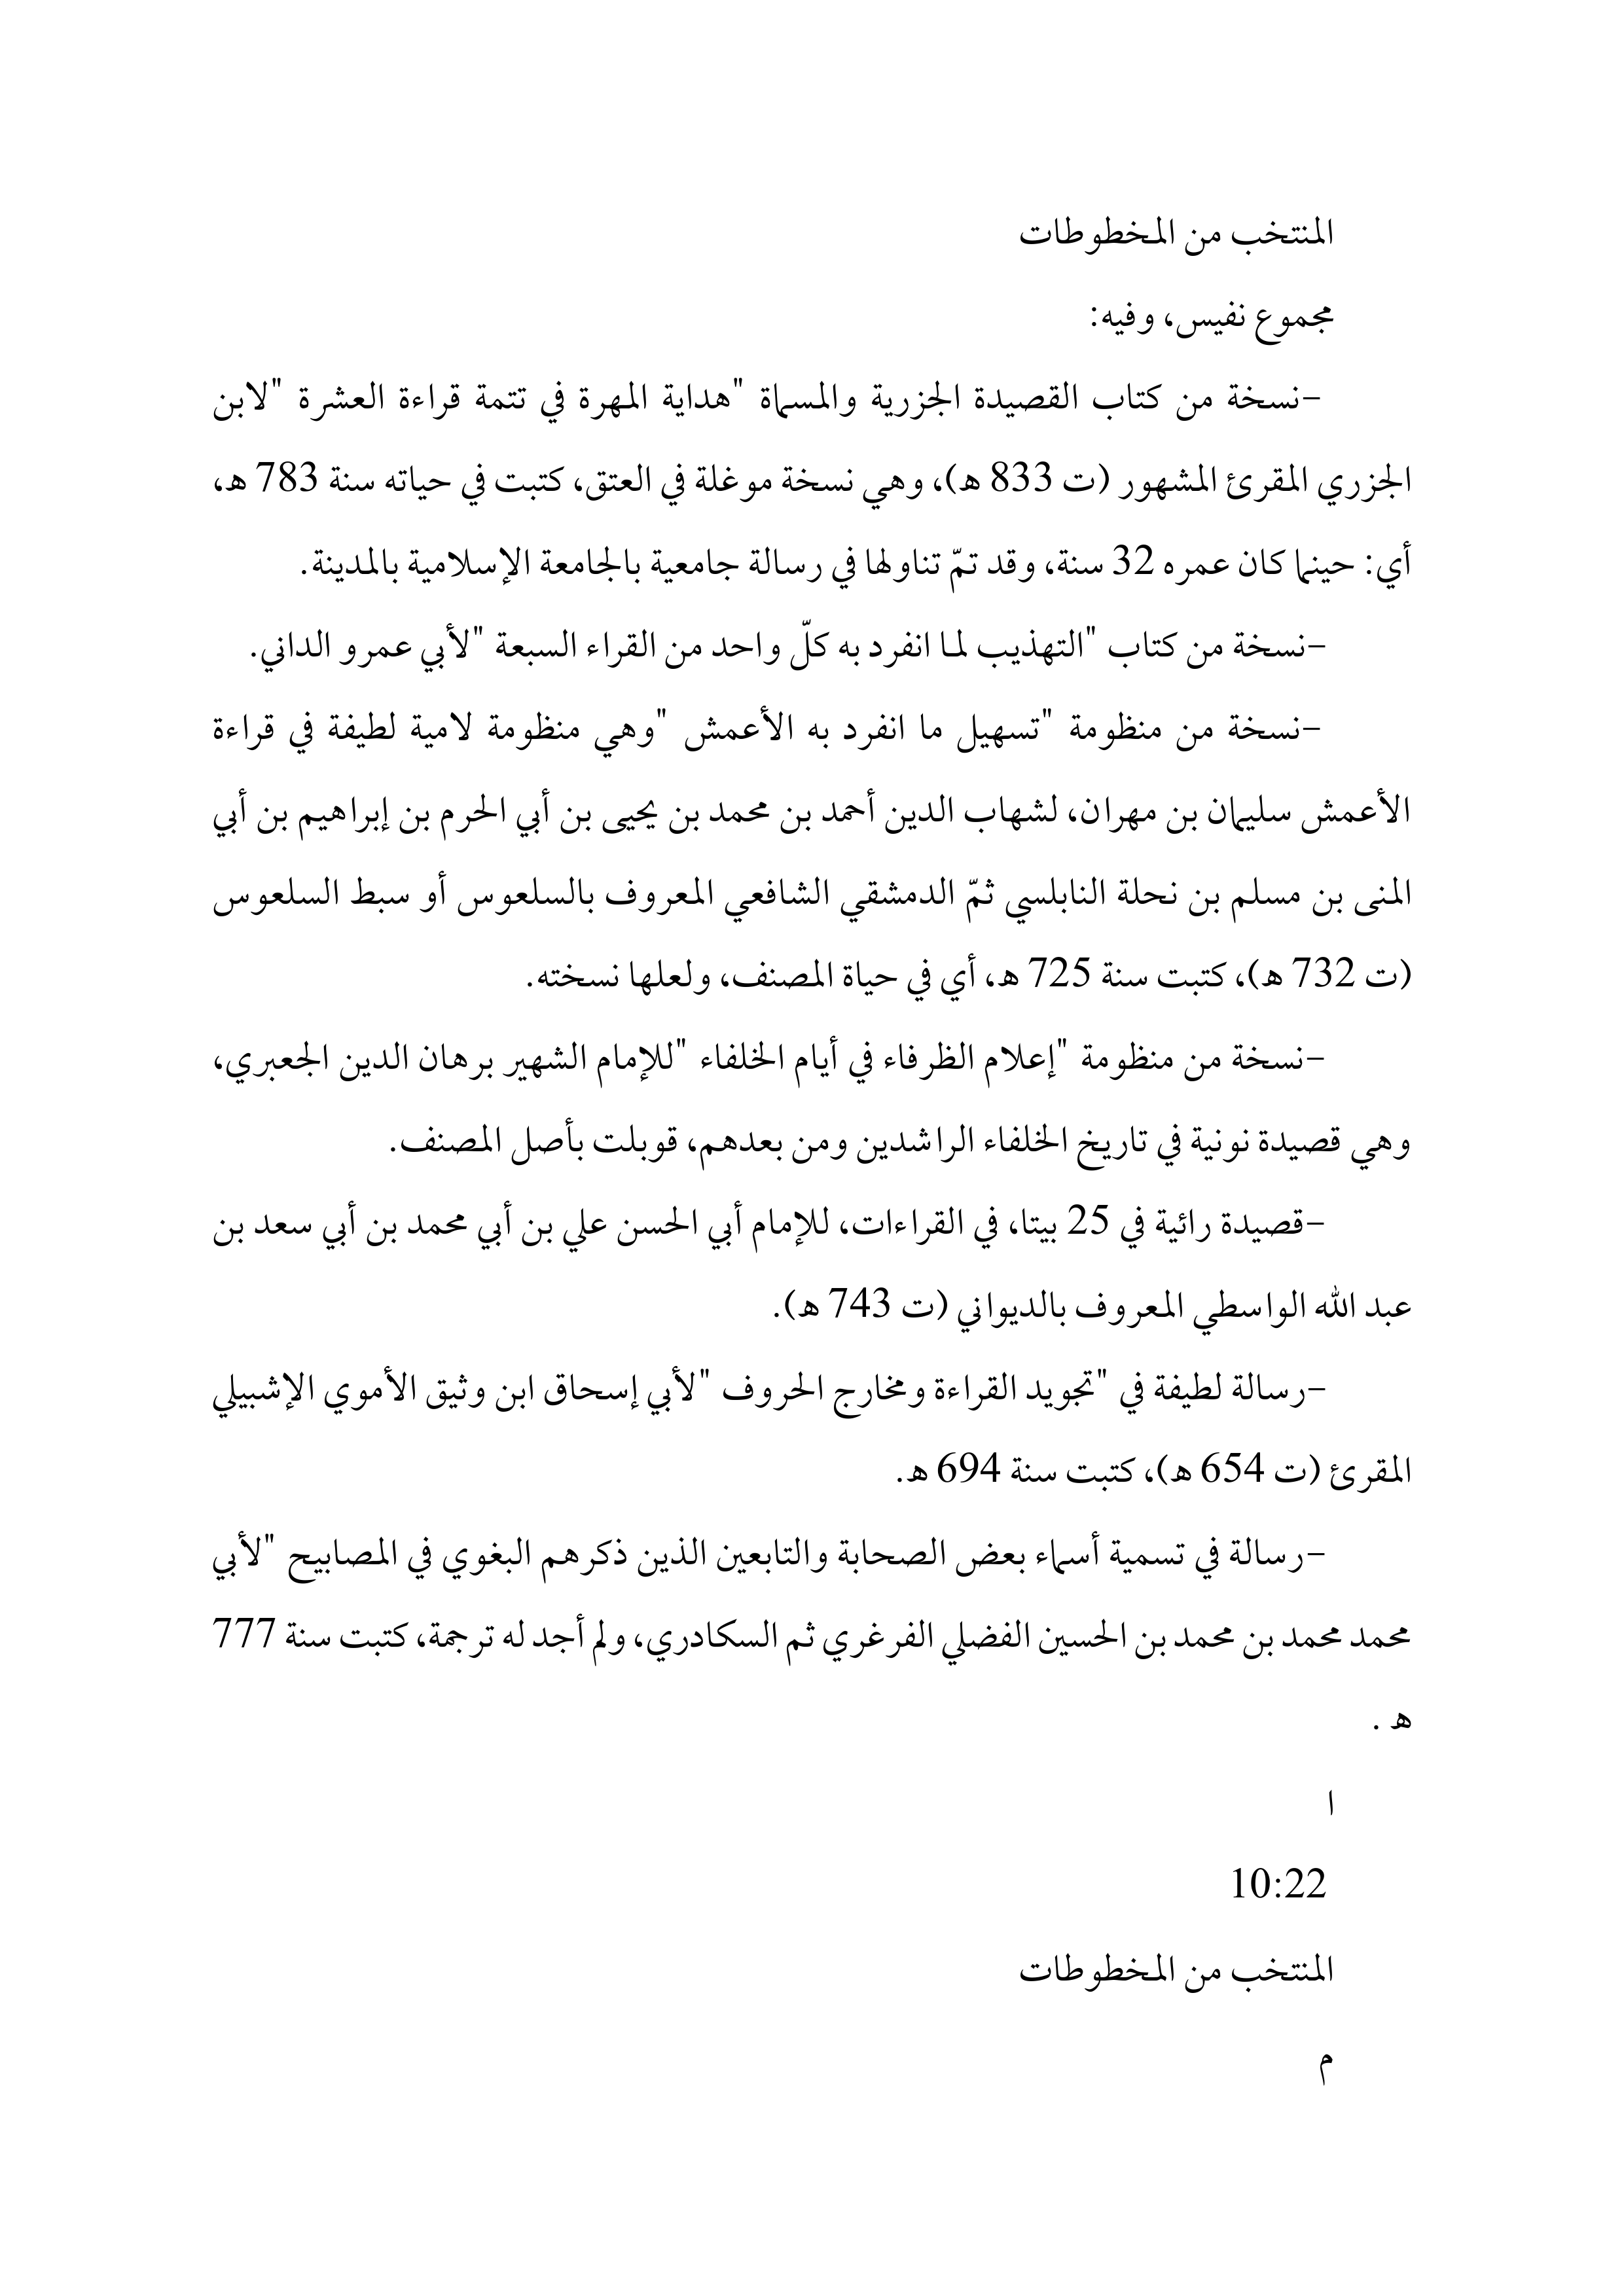 المنتخب من المخطوطات
مجموع نفيس، وفيه:
-نسخة من كتاب القصيدة الجزرية والمسماة "هداية المهرة في تتمة قراءة العشرة "لابن
الجزري المقرئ المشهور (ت 833 ه)، وهي نسخة موغلة في العتق، كتبت في حياته سنة 783 ه،
أي: حينما كان عمره 32 سنة، وقد تمّ تناولها في رسالة جامعية بالجامعة الإسلامية بالمدينة.
-نسخة من كتاب "التهذيب لما انفرد به كلّ واحد من القراء السبعة "لأبي عمرو الداني.
-نسخة من منظومة "تسهيل ما انفرد به الأعمش "وهي منظومة لامية لطيفة في قراءة
الأعمش سليمان بن مهران، لشهاب الدين أحمد بن محمد بن يحيى بن أبي الحرم بن إبراهيم بن أبي
المنى بن مسلم بن نحلة النابلسي ثمّ الدمشقي الشافعي المعروف بالسلعوس أو سبط السلعوس
(ت 732 ه)، كتبت سنة 725 ه، أي في حياة المصنف، ولعلها نسخته.
-نسخة من منظومة "إعلام الظرفاء في أيام الخلفاء "للإمام الشهير برهان الدين الجعبري،
وهي قصيدة نونية في تاريخ الخلفاء الراشدين ومن بعدهم، قوبلت بأصل المصنف.
-قصيدة رائية في 25 بيتا، في القراءات، للإمام أبي الحسن علي بن أبي محمد بن أبي سعد بن
عبد الله الواسطي المعروف بالديواني (ت 743 ه).
-رسالة لطيفة في "تجويد القراءة ومخارج الحروف "لأبي إسحاق ابن وثيق الأموي الإشبيلي
المقرئ (ت 654 ه)، كتبت سنة 694 ه.
-رسالة في تسمية أسماء بعض الصحابة والتابعين الذين ذكرهم البغوي في المصابيح "لأبي
محمد محمد بن محمد بن الحسين الفضلي الفرغري ثم السكادري، ولم أجد له ترجمة، كتبت سنة 777
ه .
ا
10:22
المنتخب من المخطوطات
م